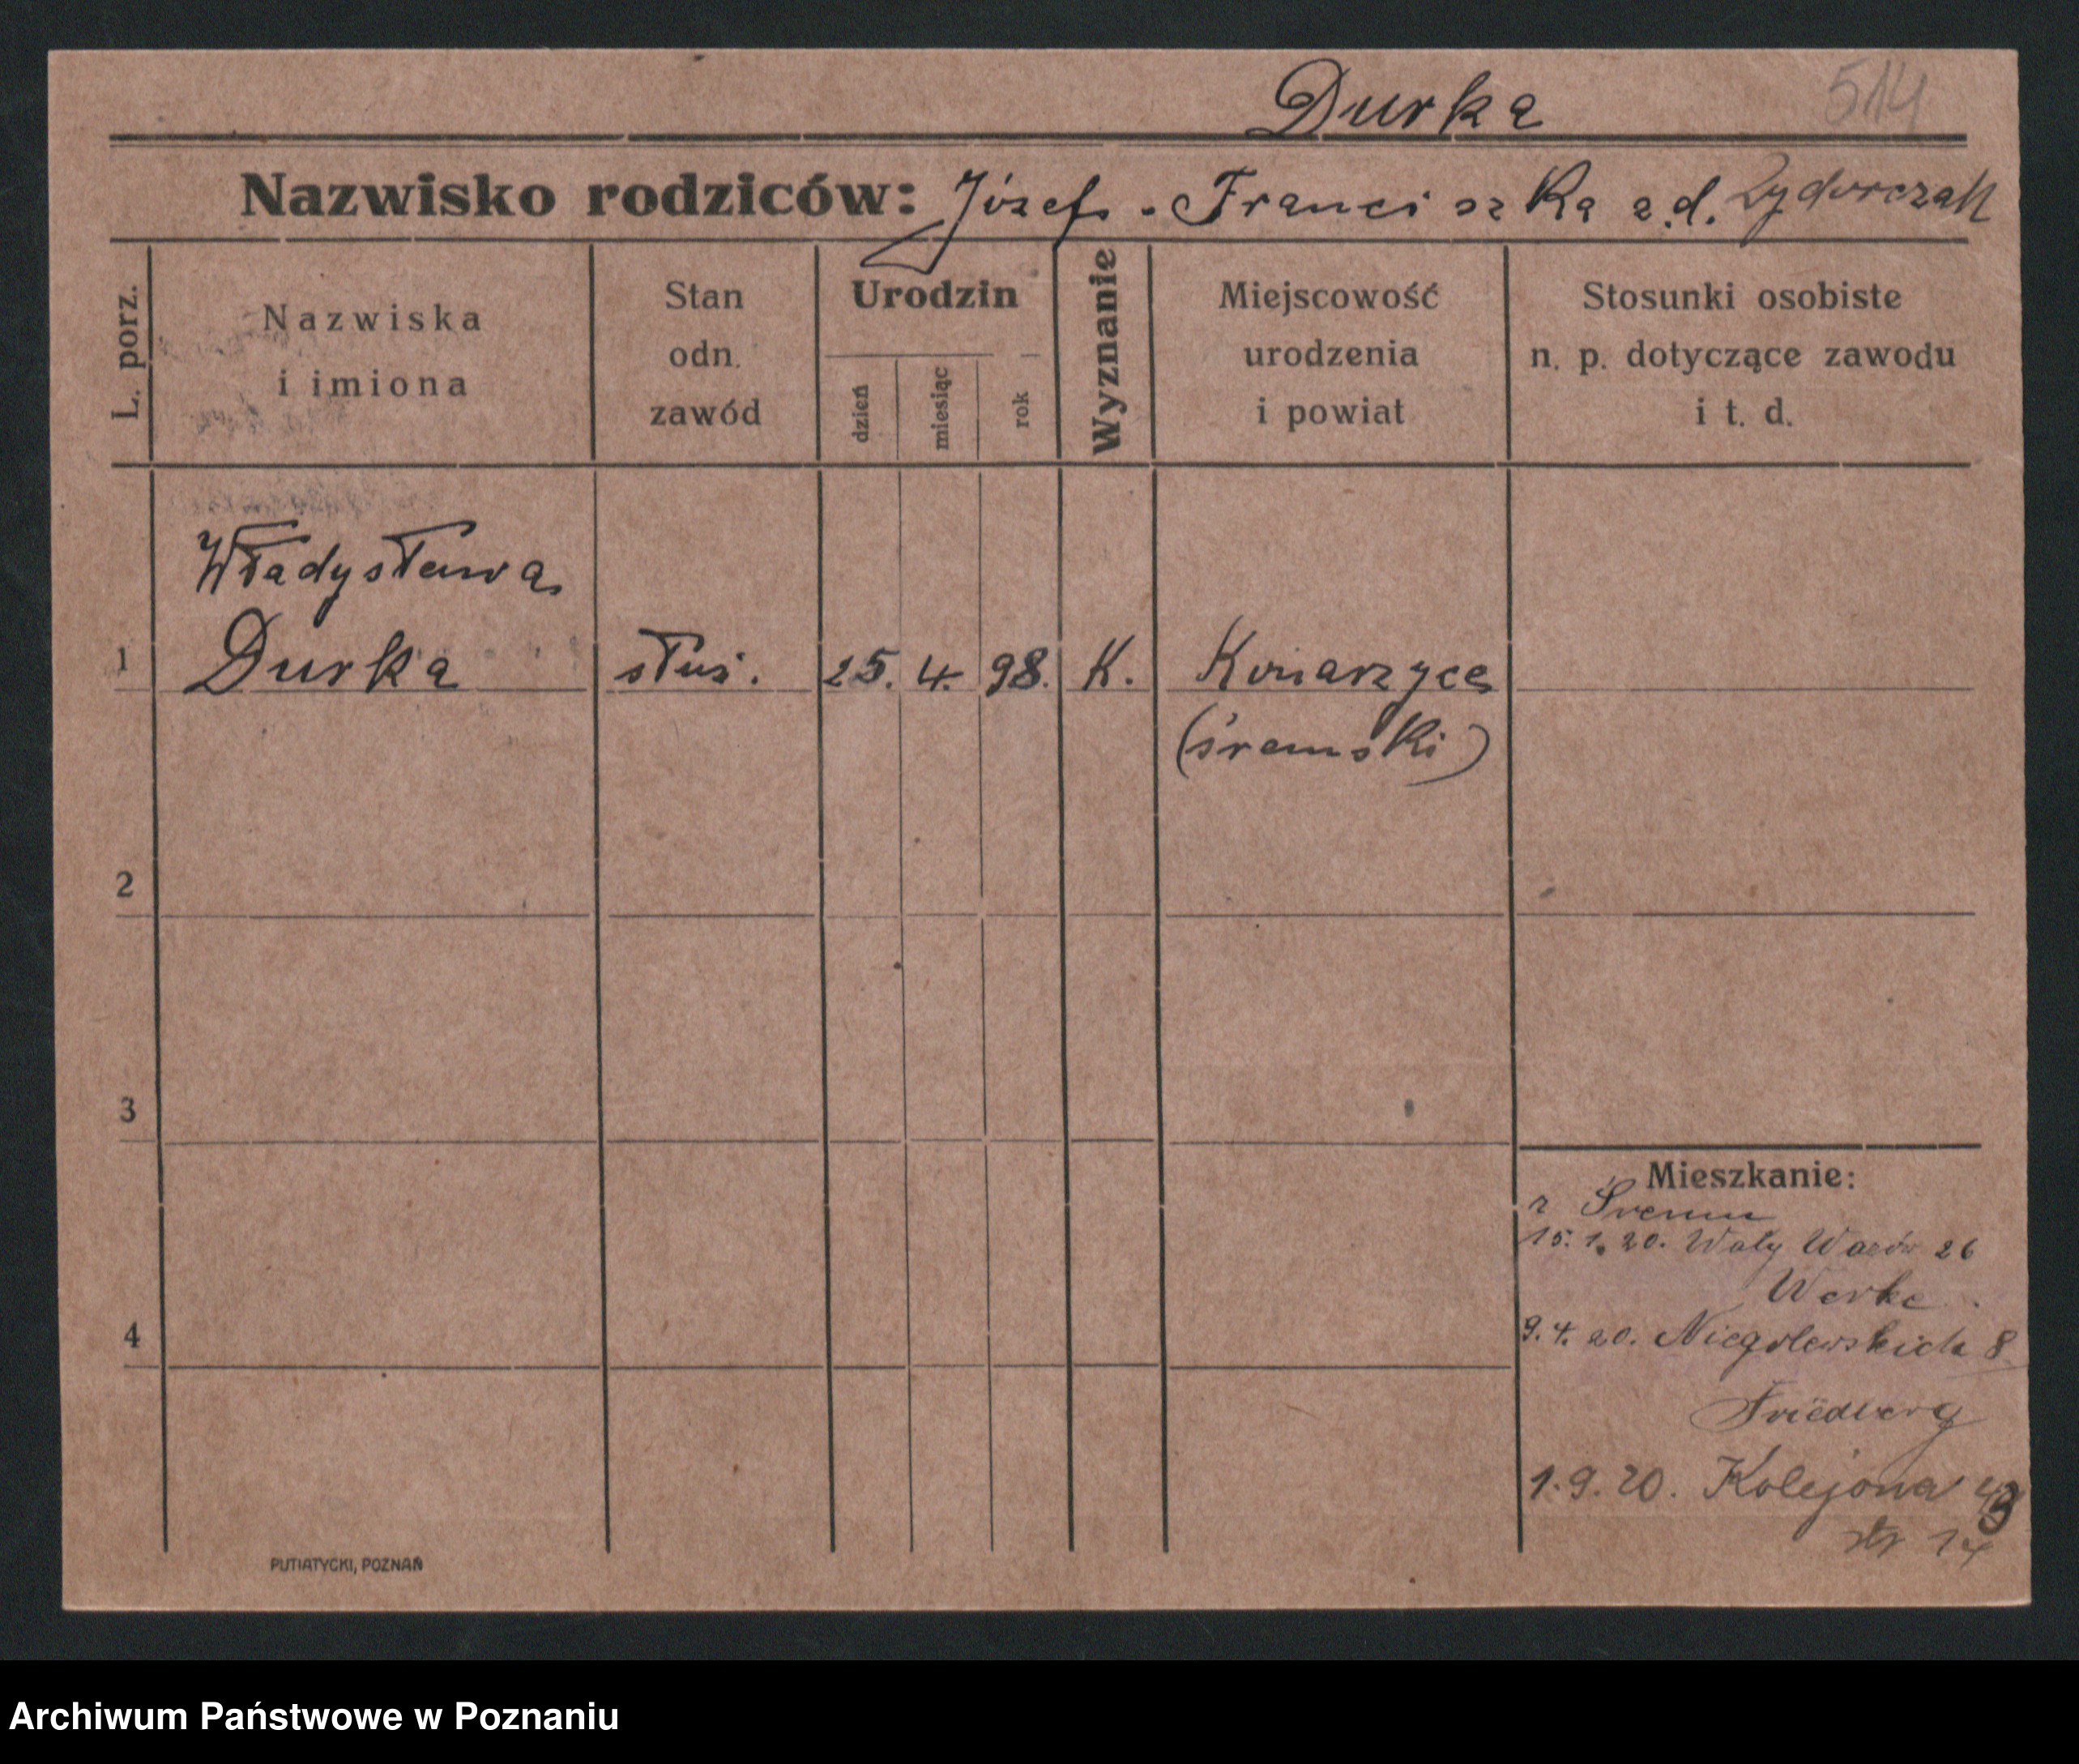 Durka 514
Nazwisko rodziców: Józef - Franciszka z.d. Zydorczak
L. porz.
Nazwiska
i imiona
Stan
odn.
zawód
Urodzin
dzień
miesiąc
rok
Wyznanie
Miejscowość
urodzenia
i powiat
Stosunki osobiste
n. p. dotyczące zawodu
i t. d.
Władysława
1 Durka służ. 25. 4. 98. K. Konarzyce
(śremski)
2
3
Mieszkanie:
z Śremu
15.1.20. Wały Wazów 26
Werke
4
9.4.20. Niegolewskich 8
Friedberg
1.9.20. Kolejowa 43
PUTIATYCKI, POZNAŃ
Archiwum Państwowe w Poznaniu